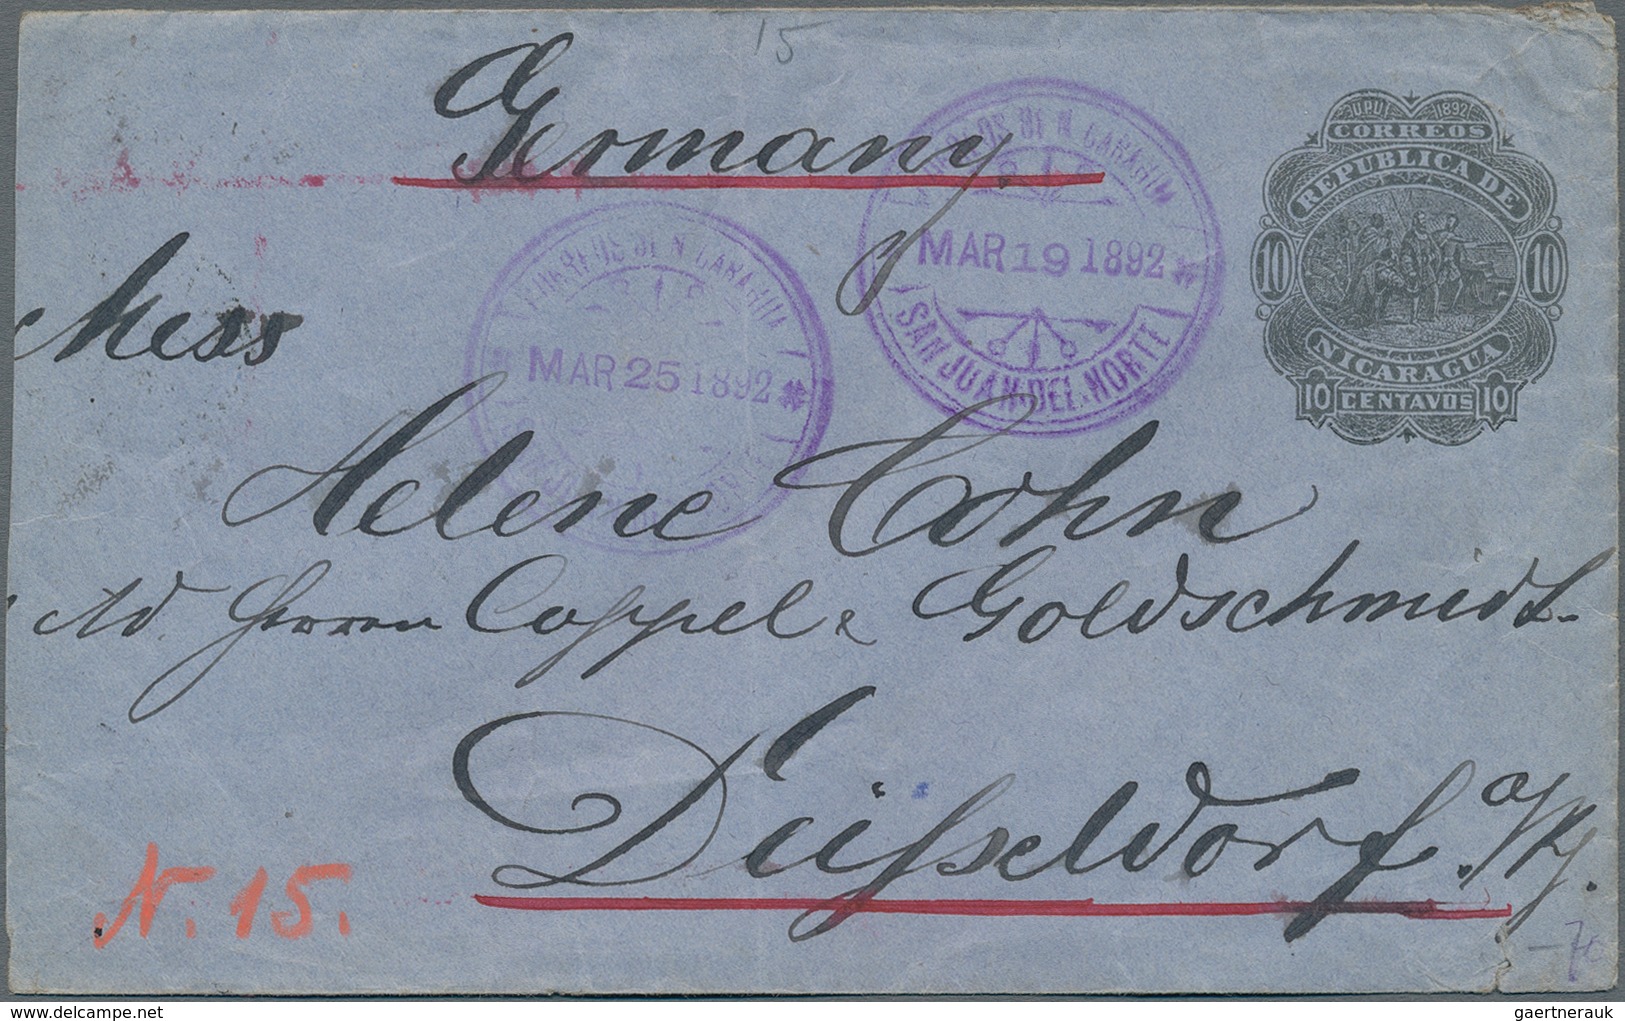 15
Germany
U.P.U. 1892
CORREOS
REPUBLICA DE
10 10
NICARAGUA
10 CENTAVOS 10
CORREOS DE NICARAGUA
MAR 19 1892
SAN JUAN DEL NORTE
CORREOS DE NICARAGUA
MAR 25 1892
Mess
Helene Cohn
Ad. Herren Coppel & Goldschmidt
Düsseldorf a/Rh.
N. 15.
gaertnerauk